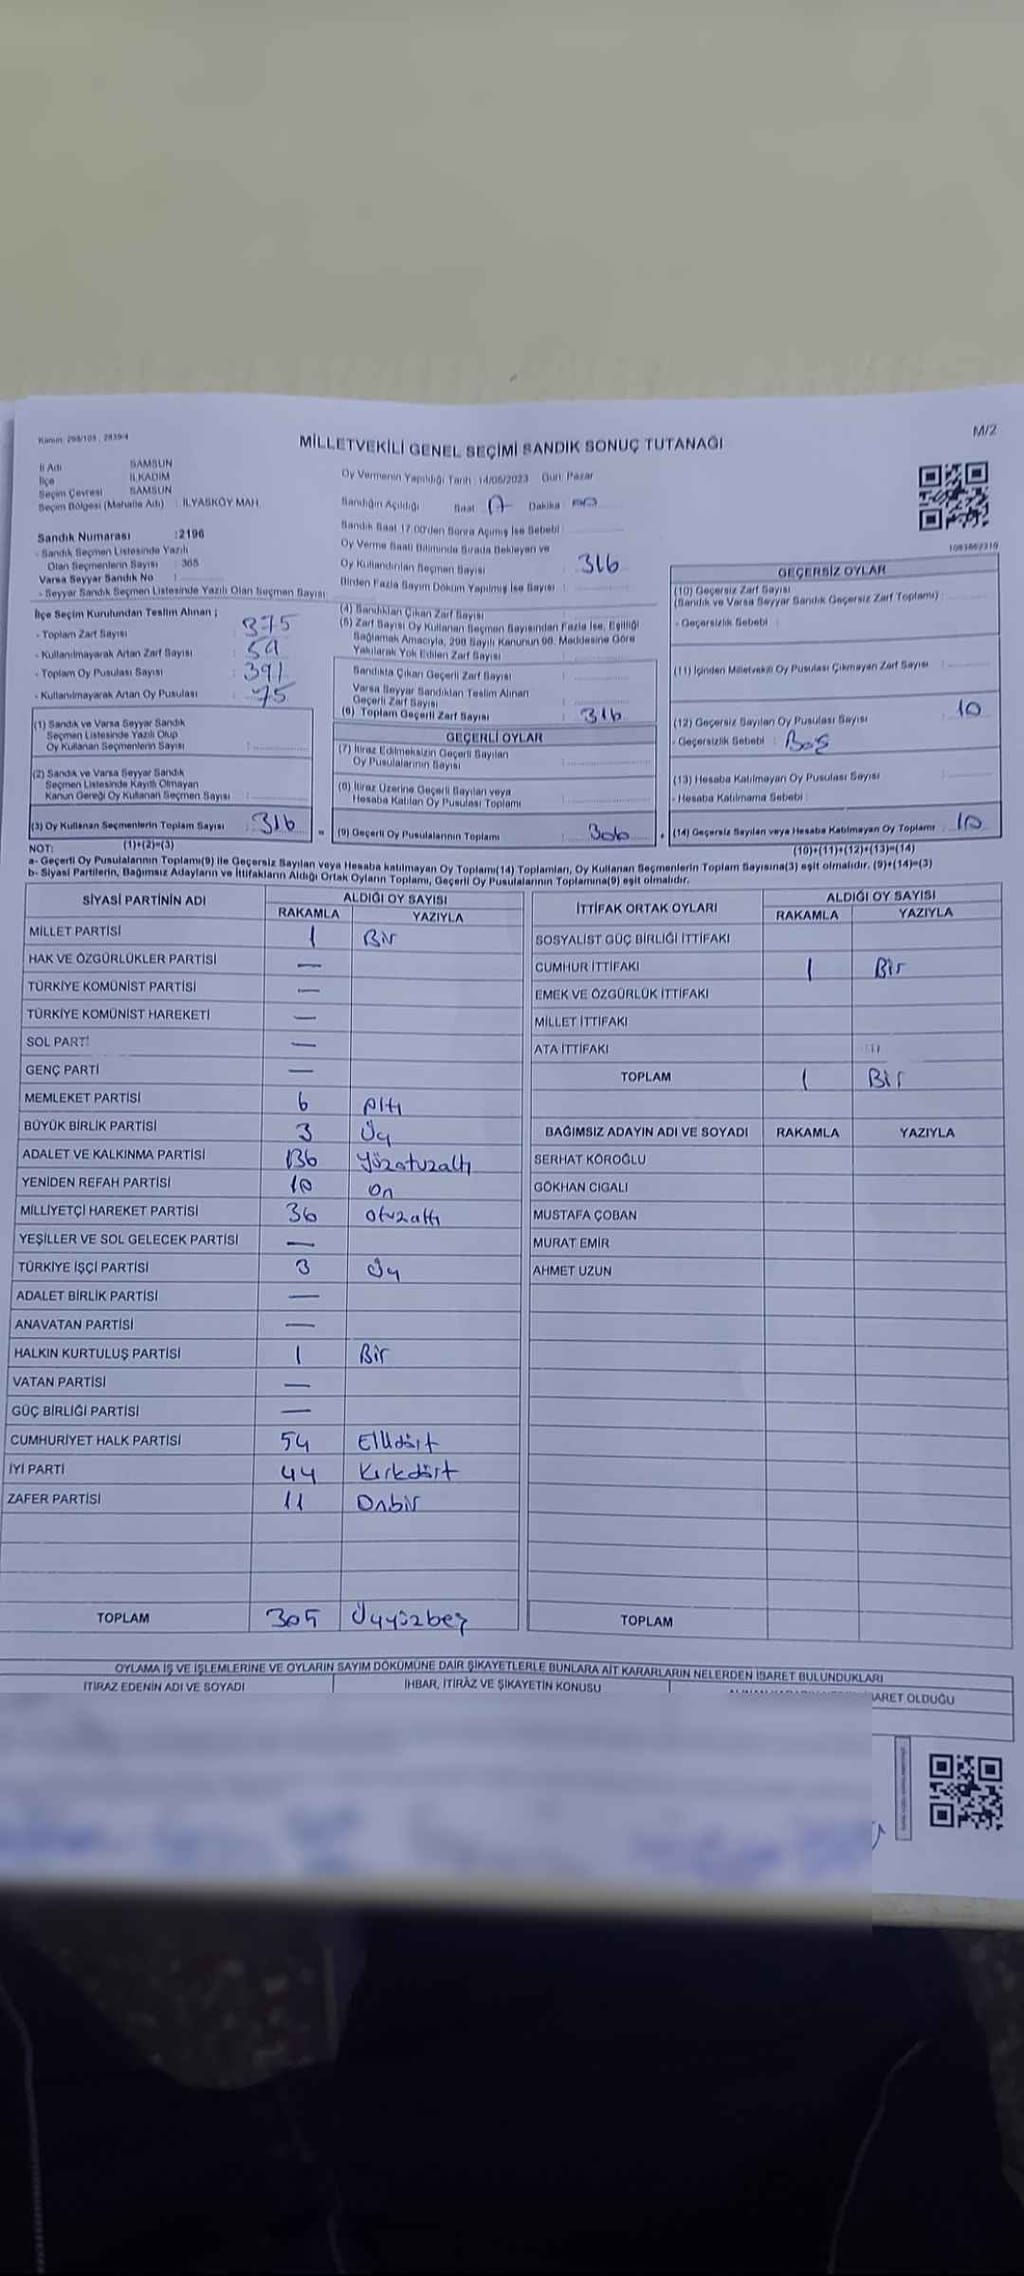 Kanun: 298/105 , 2839/4
M/2
MİLLETVEKİLİ GENEL SEÇİMİ SANDIK SONUÇ TUTANAĞI
İl Adı : SAMSUN
İlçe : İLKADIM
Seçim Çevresi : SAMSUN
Seçim Bölgesi (Mahalle Adı) : İLYASKÖY MAH
Sandık Numarası :2196
- Sandık Seçmen Listesinde Yazılı
Olan Seçmenlerin Sayısı : 365
Varsa Seyyar Sandık No :
- Seyyar Sandık Seçmen Listesinde Yazılı Olan Seçmen Sayısı :
Oy Vermenin Yapıldığı Tarih : 14/05/2023 Gün: Pazar
Sandığın Açıldığı Saat 17 Dakika 00
Sandık Saat 17.00'den Sonra Açılmış İse Sebebi :
Oy Verme Saati Bitiminde Sırada Bekleyen ve
Oy Kullandırılan Seçmen Sayısı : 316
Birden Fazla Sayım Döküm Yapılmış İse Sayısı :
1083862219
İlçe Seçim Kurulundan Teslim Alınan ;
- Toplam Zarf Sayısı : 375
- Kullanılmayarak Artan Zarf Sayısı : 59
- Toplam Oy Pusulası Sayısı : 391
- Kullanılmayarak Artan Oy Pusulası : 75
(1) Sandık ve Varsa Seyyar Sandık
Seçmen Listesinde Yazılı Olup
Oy Kullanan Seçmenlerin Sayısı :
(2) Sandık ve Varsa Seyyar Sandık
Seçmen Listesinde Kayıtlı Olmayan
Kanun Gereği Oy Kullanan Seçmen Sayısı :
(3) Oy Kullanan Seçmenlerin Toplam Sayısı : 316
(1)+(2)=(3)
(4) Sandıktan Çıkan Zarf Sayısı :
(5) Zarf Sayısı Oy Kullanan Seçmen Sayısından Fazla İse, Eşitliği
Sağlamak Amacıyla, 298 Sayılı Kanunun 98. Maddesine Göre
Yakılarak Yok Edilen Zarf Sayısı :
Sandıkta Çıkan Geçerli Zarf Sayısı :
Varsa Seyyar Sandıktan Teslim Alınan
Geçerli Zarf Sayısı :
(6) Toplam Geçerli Zarf Sayısı : 316
GEÇERLİ OYLAR
(7) İtiraz Edilmeksizin Geçerli Sayılan
Oy Pusulalarının Sayısı :
(8) İtiraz Üzerine Geçerli Sayılan veya
Hesaba Katılan Oy Pusulası Toplamı :
= (9) Geçerli Oy Pusulalarının Toplamı : 306
GEÇERSİZ OYLAR
(10) Geçersiz Zarf Sayısı
(Sandık ve Varsa Seyyar Sandık Geçersiz Zarf Toplamı) :
- Geçersizlik Sebebi :
(11) İçinden Milletvekili Oy Pusulası Çıkmayan Zarf Sayısı :
(12) Geçersiz Sayılan Oy Pusulası Sayısı : 10
- Geçersizlik Sebebi : Boş
(13) Hesaba Katılmayan Oy Pusulası Sayısı :
- Hesaba Katılmama Sebebi :
+ (14) Geçersiz Sayılan veya Hesaba Katılmayan Oy Toplamı : 10
(10)+(11)+(12)+(13)=(14)
NOT:
a- Geçerli Oy Pusulalarının Toplamı(9) ile Geçersiz Sayılan veya Hesaba katılmayan Oy Toplamı(14) Toplamları, Oy Kullanan Seçmenlerin Toplam Sayısına(3) eşit olmalıdır. (9)+(14)=(3)
b- Siyasi Partilerin, Bağımsız Adayların ve İttifakların Aldığı Ortak Oyların Toplamı, Geçerli Oy Pusulalarının Toplamına(9) eşit olmalıdır.
SİYASİ PARTİNİN ADI ALDIĞI OY SAYISI
RAKAMLA YAZIYLA
MİLLET PARTİSİ 1 Bir
HAK VE ÖZGÜRLÜKLER PARTİSİ —
TÜRKİYE KOMÜNİST PARTİSİ —
TÜRKİYE KOMÜNİST HAREKETİ —
SOL PARTİ —
GENÇ PARTİ —
MEMLEKET PARTİSİ 6 Altı
BÜYÜK BİRLİK PARTİSİ 3 Üç
ADALET VE KALKINMA PARTİSİ 136 Yüzotuzaltı
YENİDEN REFAH PARTİSİ 10 On
MİLLİYETÇİ HAREKET PARTİSİ 36 Otuzaltı
YEŞİLLER VE SOL GELECEK PARTİSİ —
TÜRKİYE İŞÇİ PARTİSİ 3 Üç
ADALET BİRLİK PARTİSİ —
ANAVATAN PARTİSİ —
HALKIN KURTULUŞ PARTİSİ 1 Bir
VATAN PARTİSİ —
GÜÇ BİRLİĞİ PARTİSİ —
CUMHURİYET HALK PARTİSİ 54 Ellidört
İYİ PARTİ 44 Kırkdört
ZAFER PARTİSİ 11 Onbir
TOPLAM 305 Üçyüzbeş
İTTİFAK ORTAK OYLARI ALDIĞI OY SAYISI
RAKAMLA YAZIYLA
SOSYALİST GÜÇ BİRLİĞİ İTTİFAKI
CUMHUR İTTİFAKI 1 Bir
EMEK VE ÖZGÜRLÜK İTTİFAKI
MİLLET İTTİFAKI
ATA İTTİFAKI
TOPLAM 1 Bir
BAĞIMSIZ ADAYIN ADI VE SOYADI RAKAMLA YAZIYLA
SERHAT KÖROĞLU
GÖKHAN CIGALI
MUSTAFA ÇOBAN
MURAT EMİR
AHMET UZUN
TOPLAM
OYLAMA İŞ VE İŞLEMLERİNE VE OYLARIN SAYIM DÖKÜMÜNE DAİR ŞİKAYETLERLE BUNLARA AİT KARARLARIN NELERDEN İBARET BULUNDUKLARI
İTİRAZ EDENİN ADI VE SOYADI İHBAR, İTİRÂZ VE ŞİKAYETİN KONUSU
OLDUĞU